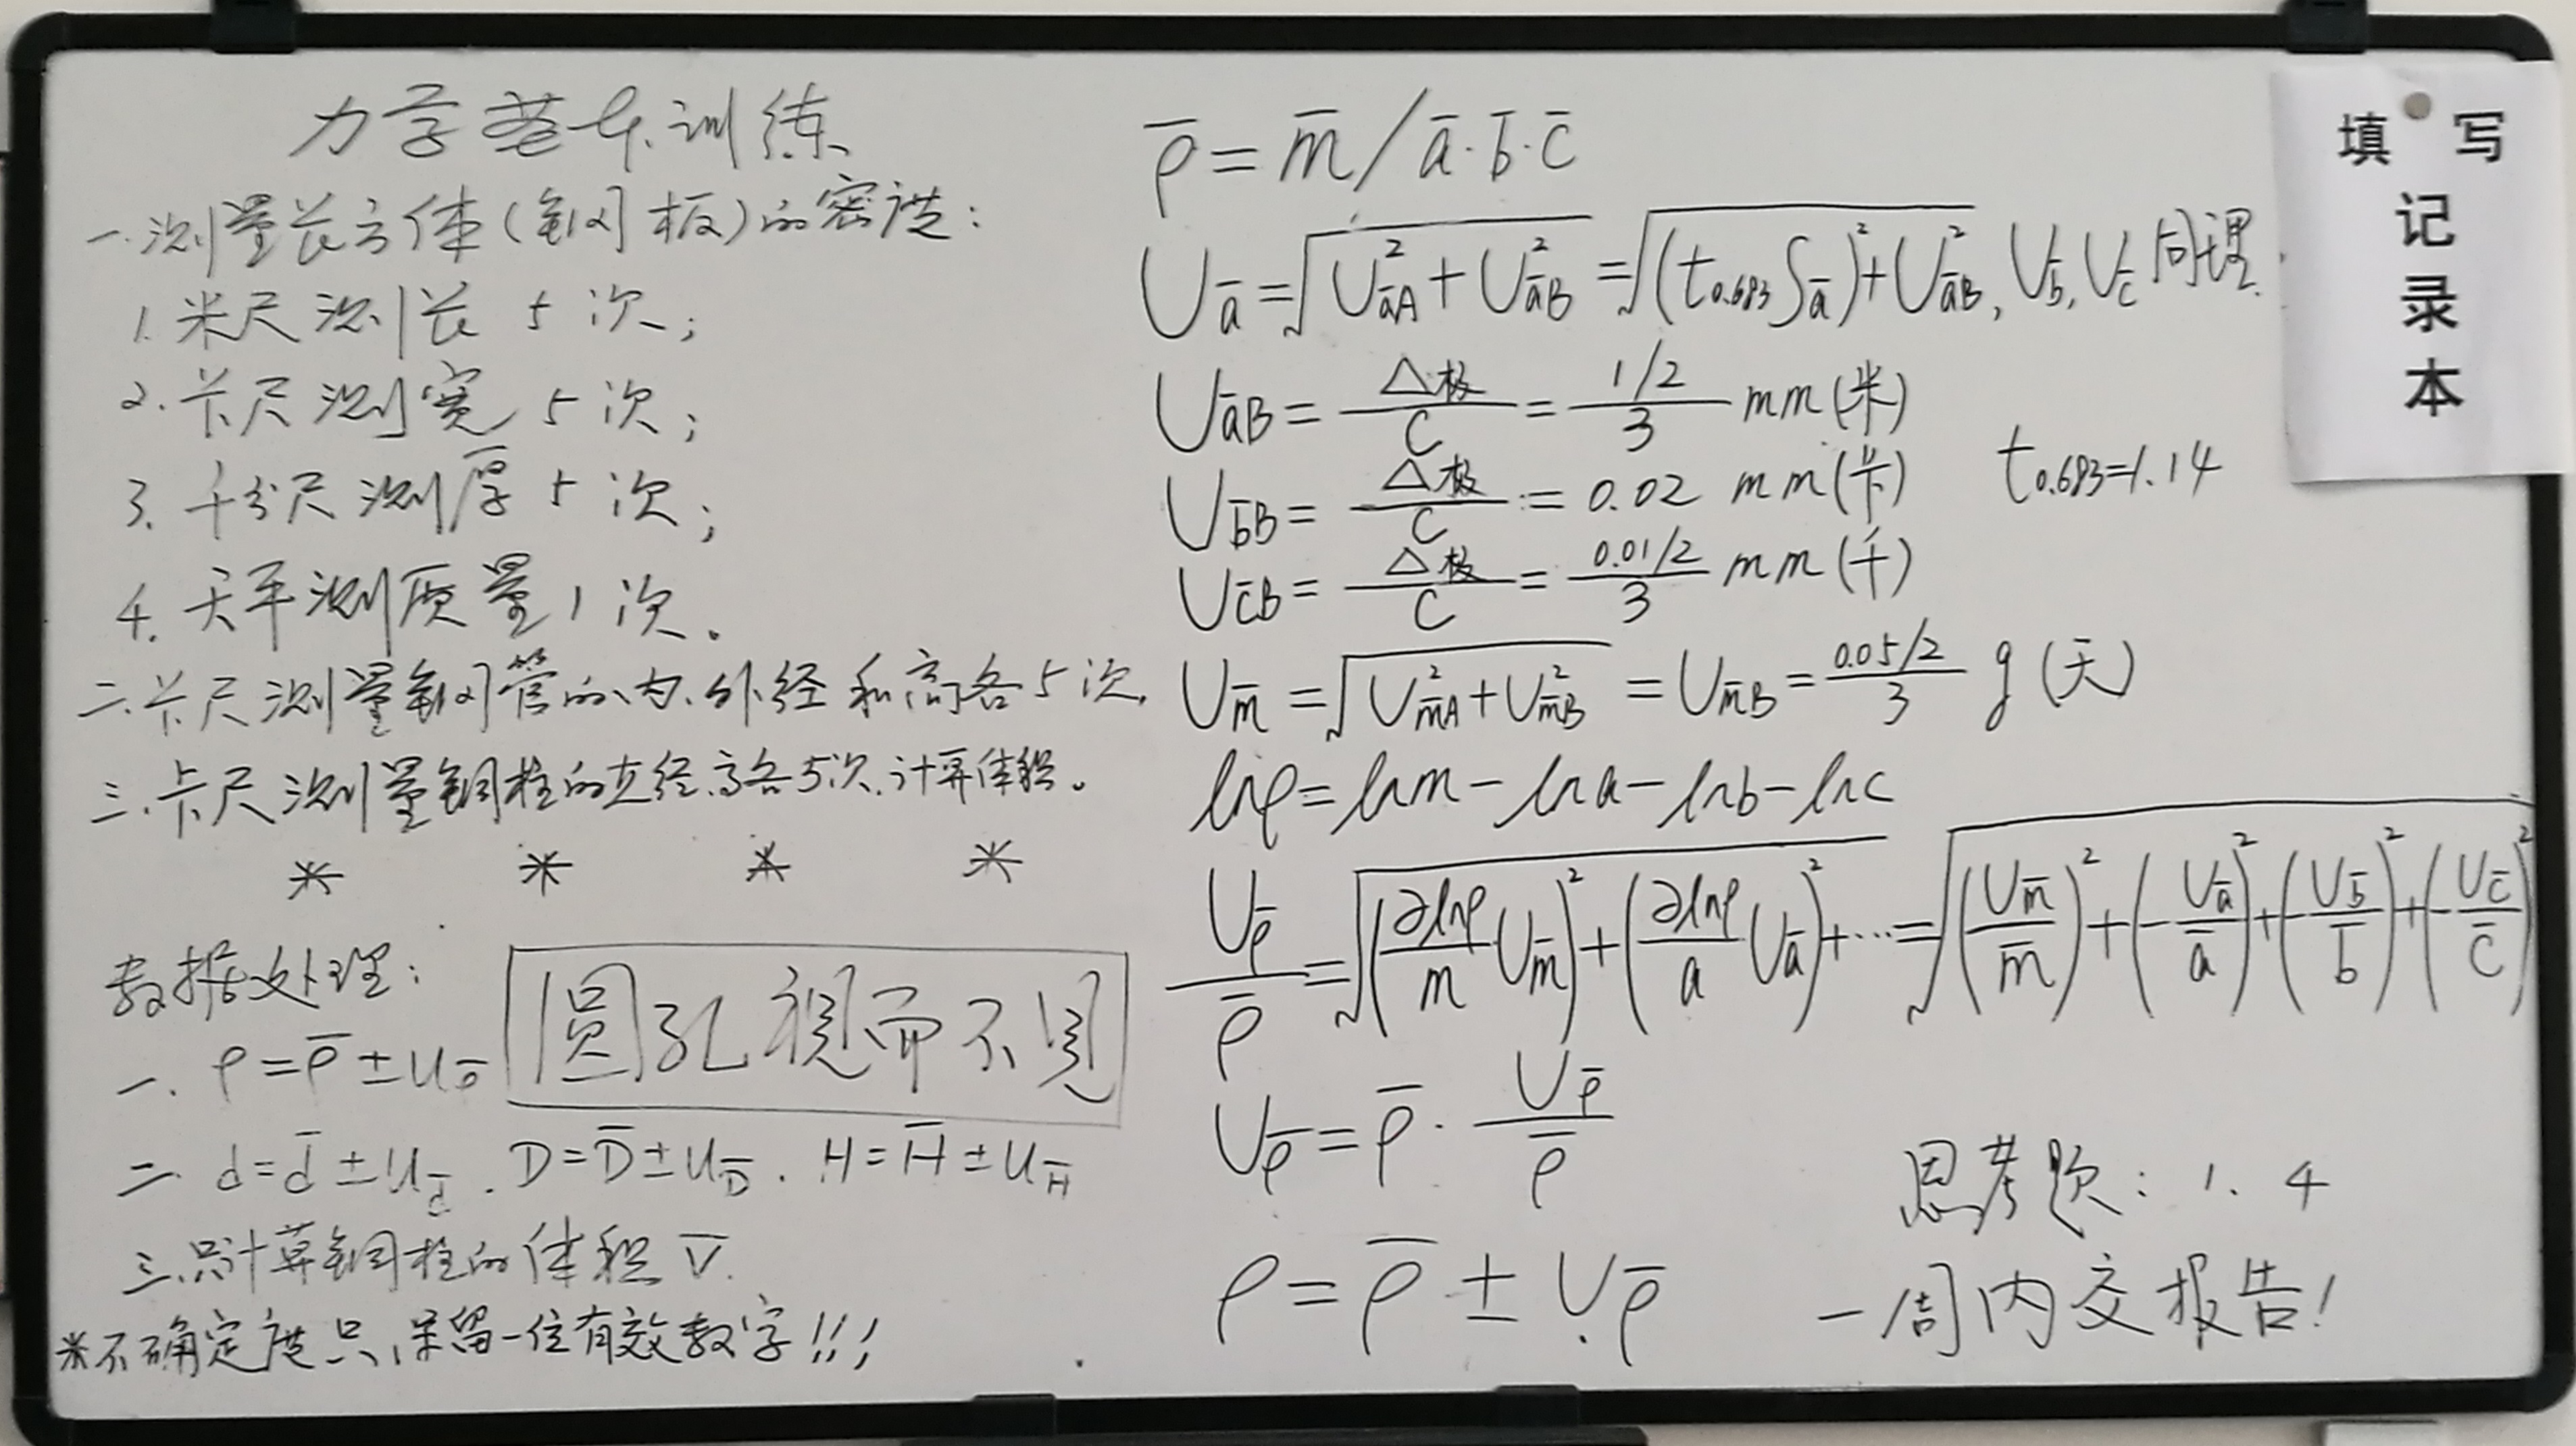 力学基本训练
一.测量长方体(钢板)的密度:
1.米尺测长5次;
2.卡尺测宽5次;
3.千分尺测厚5次;
4.天平测质量1次。
二.卡尺测量钢管的内.外径和高各5次.
三.卡尺测量铜柱的直径.高各5次.计算体积。
* * * *
数据处理:
圆孔视而不见
一. ρ=ρ̄±u_ρ̄
二. d=d̄±u_d̄. D=D̄±u_D̄. H=H̄±u_H̄
三.只计算铜柱的体积V̄.
*不确定度只保留一位有效数字!!!
ρ̄=m̄/ā·b̄·c̄
U_ā=√(U²_āA+U²_āB)=√((t₀.₆₈₃S_ā)²+U²_āB), U_b̄, U_c̄同理.
U_āB=Δ极/C=(1/2)/3 mm(米)
U_b̄B=Δ极/C=0.02 mm(卡)
t₀.₆₈₃=1.14
U_c̄B=Δ极/C=(0.01/2)/3 mm(千)
U_m̄=√(U²_m̄A+U²_m̄B)=U_m̄B=(0.05/2)/3 g(天)
lnρ=lnm-lna-lnb-lnc
U_ρ̄/ρ̄=√((∂lnρ/m U_m̄)²+(∂lnρ/a U_ā)²+…)=√((U_m̄/m̄)²+(-U_ā/ā)²+(-U_b̄/b̄)²+(-U_c̄/c̄)²)
U_ρ̄=ρ̄·U_ρ̄/ρ̄
ρ=ρ̄±U_ρ̄
思考题:1.4
一周内交报告!
填写
记
录
本